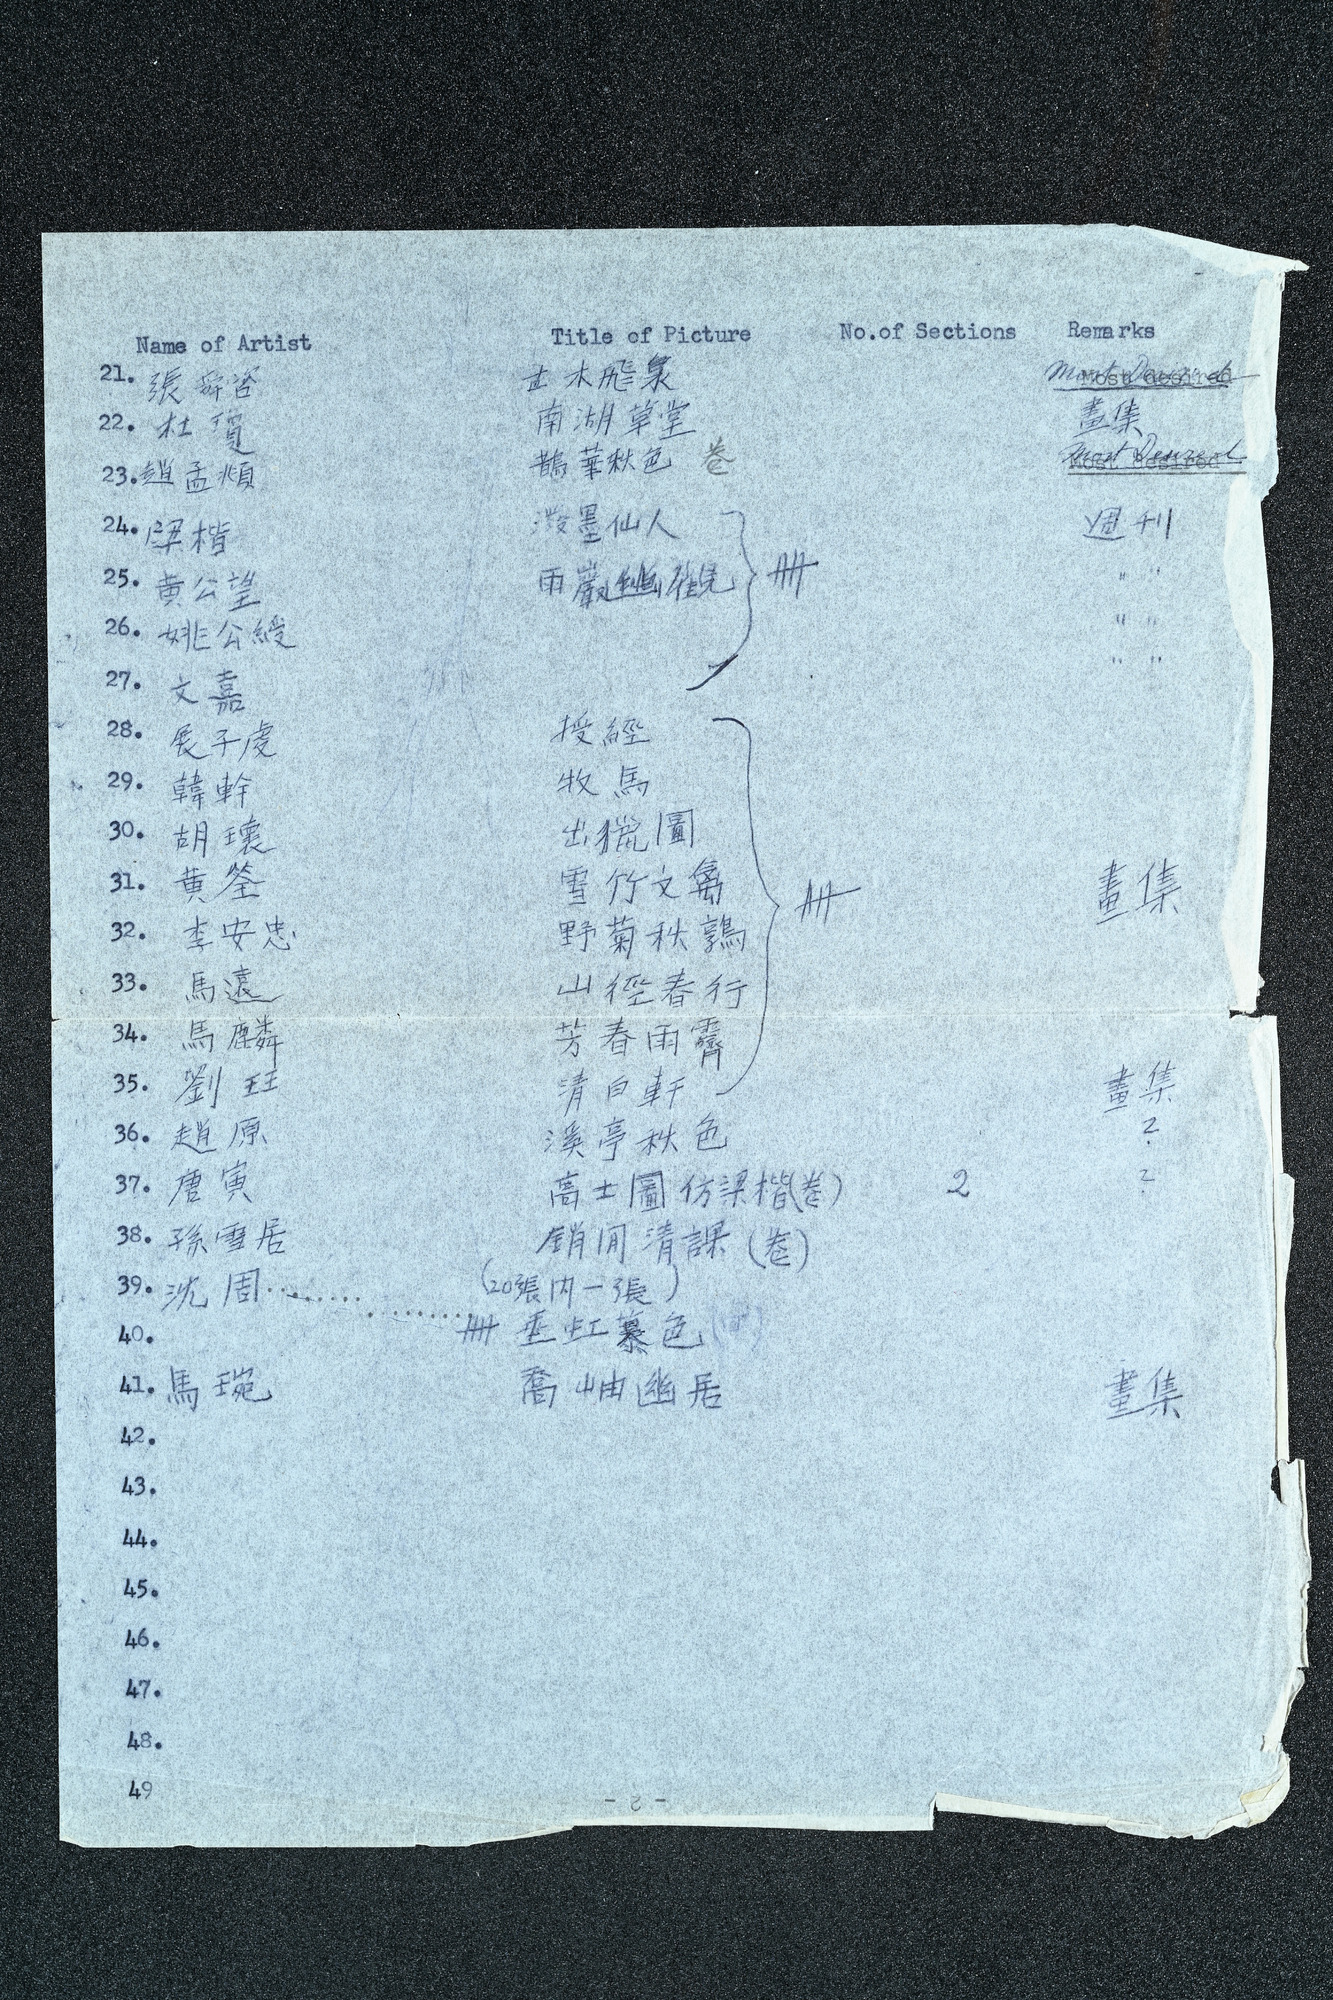 Name of Artist Title of Picture No.of Sections Remarks
21. 張舜咨 古木飛泉 Most Desired
22. 杜 南湖草堂 畫集
23. 趙孟頫 鵲華秋色 卷 Most Desired
24. 梁楷 潑墨仙人 週刊
25. 黄公望 雨巖仙觀 冊 " "
26. 姚公綬 " "
27. 文嘉 " "
28. 展子虔 授經
29. 韓幹 牧馬
30. 胡瓌 出獵圖
31. 黄筌 雪竹文禽 冊 畫集
32. 李安忠 野菊秋鶉
33. 馬遠 山徑春行
34. 馬麟 芳春雨霽
35. 劉玨 清白軒 畫集
36. 趙原 溪亭秋色 ?
37. 唐寅 高士圖仿梁楷(卷) 2 ?
38. 孫雪居 銷閒清課 (卷)
39. 沈周 (20張内一張)
40. 冊 垂虹暮色
41. 馬琬 喬岫幽居 畫集
42.
43.
44.
45.
46.
47.
48.
49
- 2 -